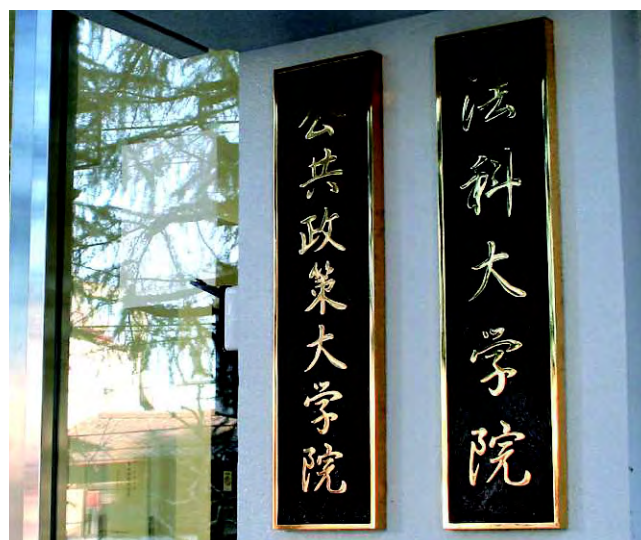 法科大学院
公共政策大学院